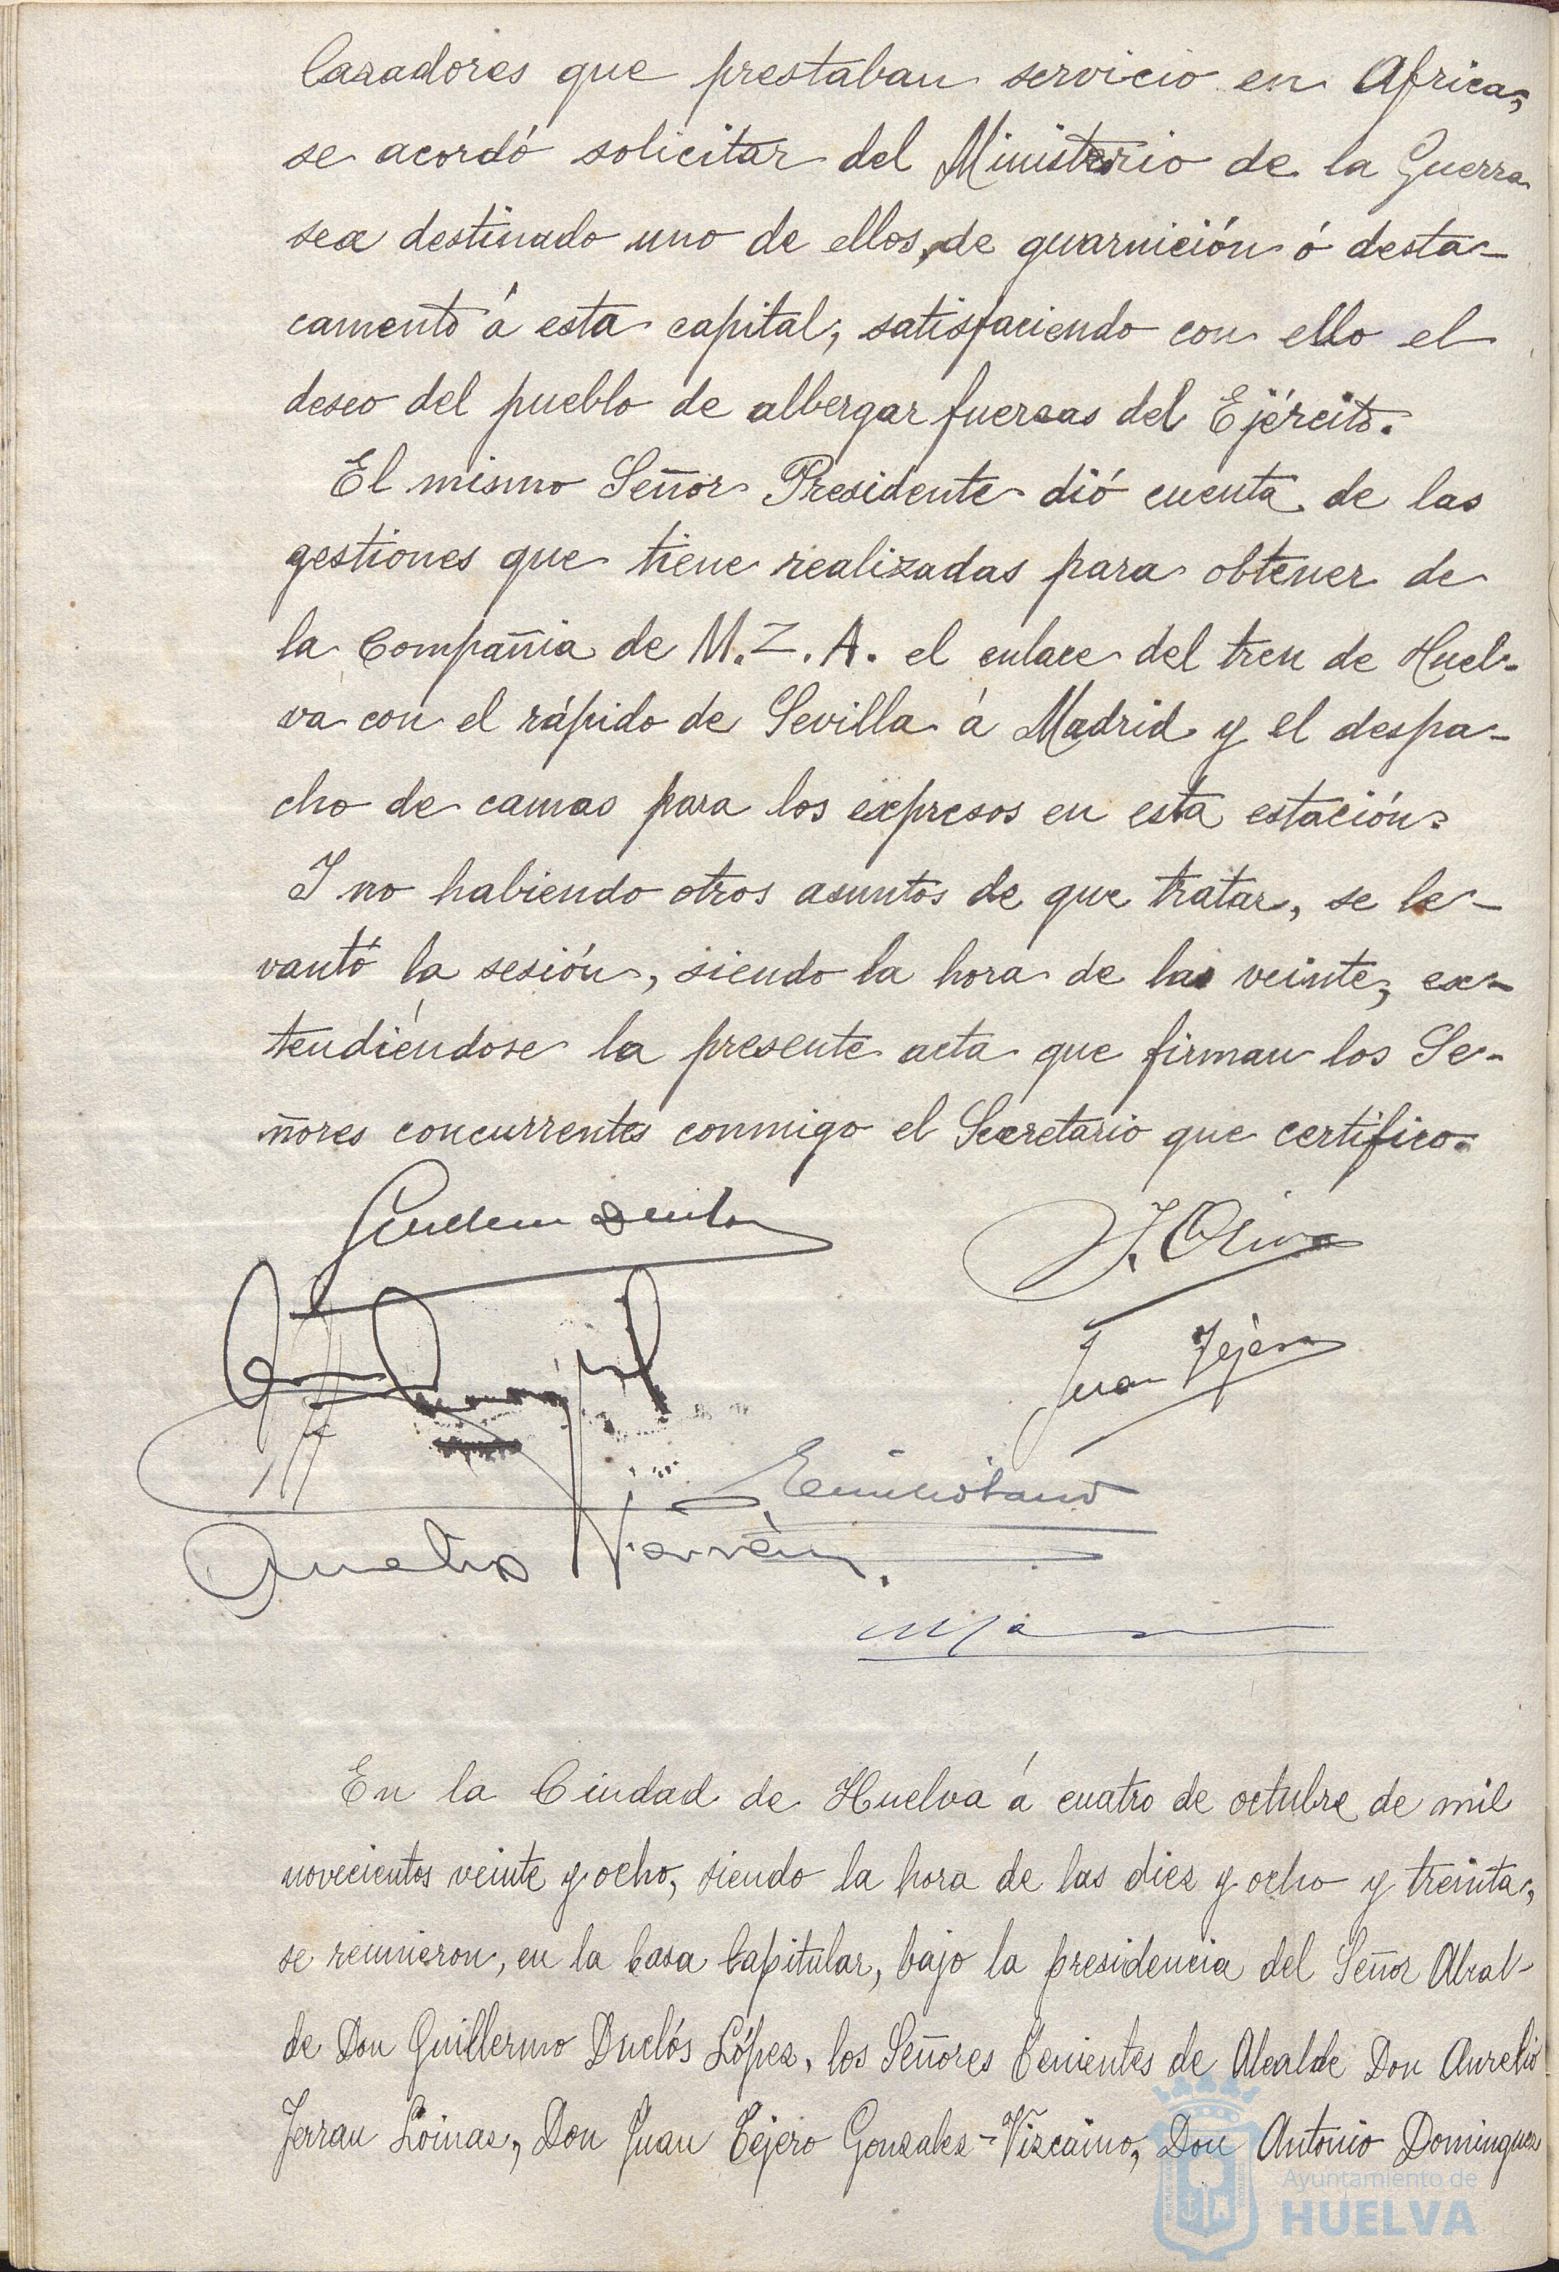 Cazadores que prestaban servicio en Africa,
se acordó solicitar del Ministerio de la Guerra
sea destinado uno de ellos, de guarnición ó desta-
camento á esta capital, satisfaciendo con ello el
deseo del pueblo de albergar fuerzas del Ejército.
El mismo Señor Presidente dió cuenta de las
gestiones que tiene realizadas para obtener de
la Compañia de M.Z.A. el enlace del tren de Huel-
va con el rápido de Sevilla á Madrid y el despa-
cho de camas para los expresos en esta estación.
Y no habiendo otros asuntos de que tratar, se le-
vantó la sesión, siendo la hora de las veinte, ex-
tendiéndose la presente acta que firman los Se-
ñores concurrentes conmigo el Secretario que certifico.
J. Oliva
Juan Tejero
Aurelio Jerrán.
En la Ciudad de Huelva á cuatro de octubre de mil
novecientos veinte y ocho, siendo la hora de las diez y ocho y treinta,
se reunieron, en la Casa Capitular, bajo la presidencia del Señor Alcal-
de Don Guillermo Duclós López, los Señores Tenientes de Alcalde Don Aurelio
Jerran Loinaz, Don Juan Tejero Gonzalez-Vizcaino, Don Antonio Dominguez
Ayuntamiento de
HUELVA